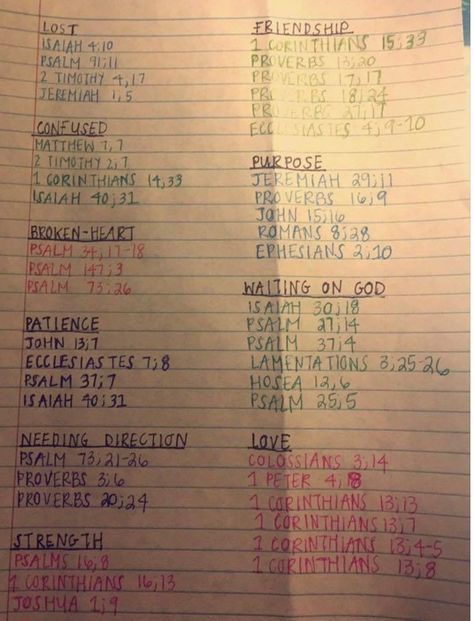 LOST
ISAIAH 4;10
PSALM 91;11
2 TIMOTHY 4,17
JEREMIAH 1;5
CONFUSED
MATTHEW 7,7
2 TIMOTHY 2;7
1 CORINTHIANS 14,33
ISAIAH 40;31
BROKEN-HEART
PSALM 34,17-18
PSALM 147;3
PSALM 73;26
PATIENCE
JOHN 13;7
ECCLESIASTES 7;8
PSALM 37;7
ISAIAH 40;31
NEEDING DIRECTION
PSALM 73;21-26
PROVERBS 3;6
PROVERBS 20;24
STRENGTH
PSALMS 16;8
1 CORINTHIANS 16,13
JOSHUA 1;9
FRIENDSHIP
1 CORINTHIANS 15;33
PROVERBS 13;20
PROVERBS 17;17
PROVERBS 18;24
PROVERBS 27;17
ECCLESIASTES 4,9-10
PURPOSE
JEREMIAH 29;11
PROVERBS 16;9
JOHN 15;16
ROMANS 8;28
EPHESIANS 2;10
WAITING ON GOD
ISAIAH 30;18
PSALM 27;14
PSALM 37;4
LAMENTATIONS 3;25-26
HOSEA 12,6
PSALM 25;5
LOVE
COLOSSIANS 3;14
1 PETER 4;8
1 CORINTHIANS 13;13
1 CORINTHIANS 13;7
1 CORINTHIANS 13;4-5
1 CORINTHIANS 13;8